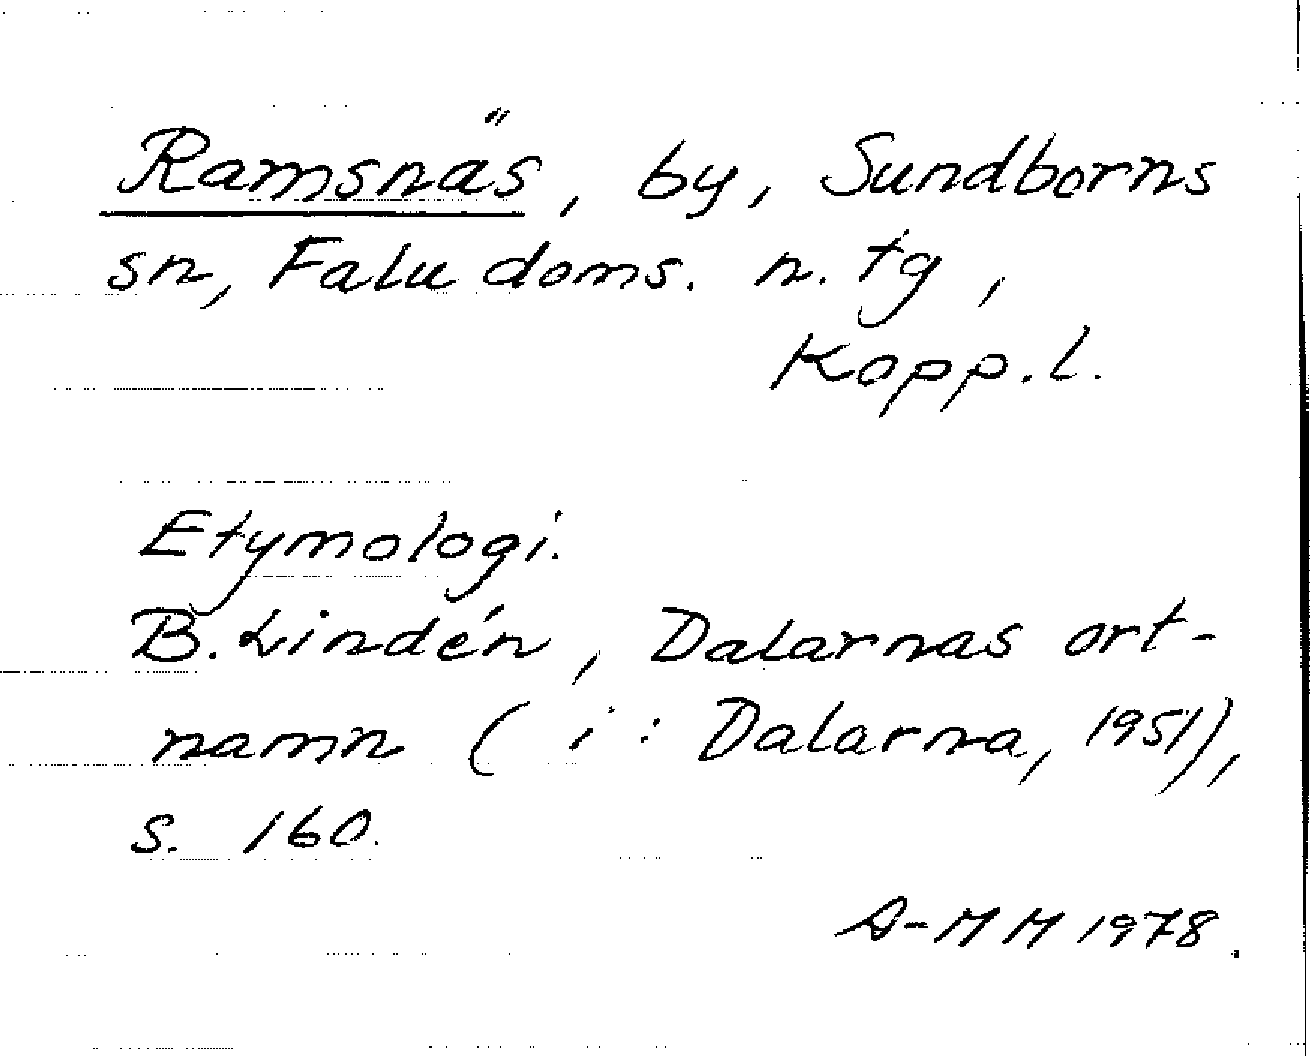 Ramsnäs, by, Sundborns
sn, Falu doms. n. tg,
Kopp.l.
Etymologi.
B. Lindén, Dalarnas ort-
namn (i: Dalarna, 1951),
s. 160.
A-MM 1978.